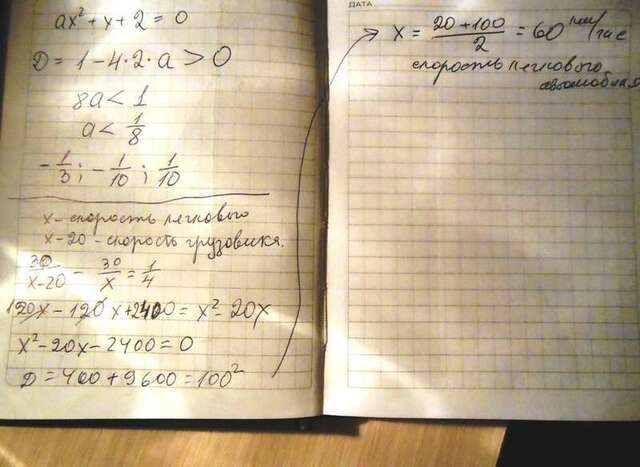 ax² + x + 2 = 0
D = 1 - 4·2·a > 0
8a < 1
a < 1/8
-1/3; -1/10; 1/10
x - скорость легкового
x-20 - скорость грузовика.
30/(x-20) - 30/x = 1/4
120x - 120x + 2400 = x² - 20x
x² - 20x - 2400 = 0
D = 400 + 9600 = 100²
ДАТА
x = (20 + 100)/2 = 60 км/час
скорость легкового
автомобиля